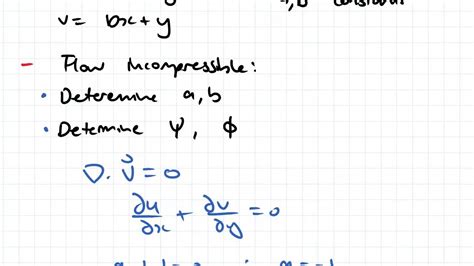 v = bx + y
- Flow incompressible:
• Deteremine a, b
• Determine Ψ, Φ
∇. v̄ = 0
∂u/∂x + ∂v/∂y = 0